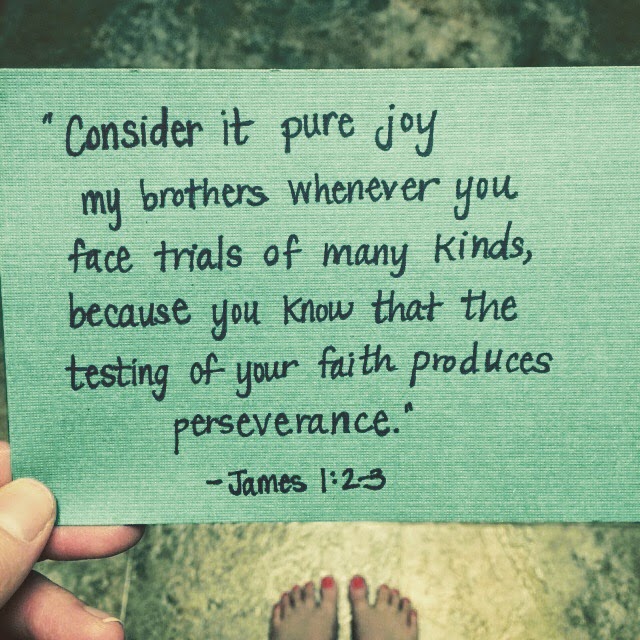 "Consider it pure joy
my brothers whenever you
face trials of many kinds,
because you know that the
testing of your faith produces
perseverance."
-James 1:2-3